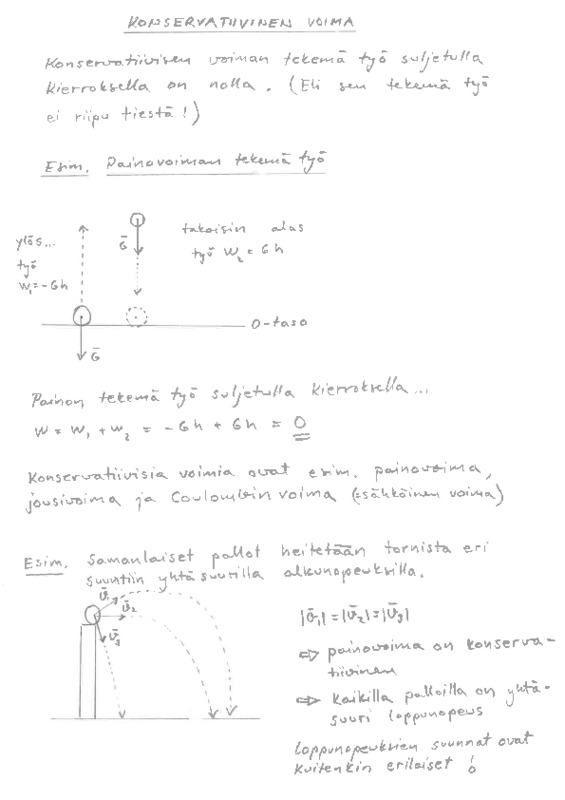 KONSERVATIIVINEN VOIMA
Konservatiivisen voiman tekemä työ suljetulla
kierroksella on nolla. (Eli sen tekemä työ
ei riipu tiestä!)
Esim. Painovoiman tekemä työ
ylös...
työ
W₁=-Gh
G̅
takaisin alas
työ W₂ = Gh
0-taso
G̅
Painon tekemä työ suljetulla kierroksella...
W = W₁ + W₂ = -Gh + Gh = 0
Konservatiivisia voimia ovat esim. painovoima,
jousivoima ja Coulombin voima (=sähköinen voima)
Esim. Samanlaiset pallot heitetään tornista eri
suuntiin yhtä suurilla alkunopeuksilla.
v̅₁
v̅₂
v̅₃
|v̅₁|=|v̅₂|=|v̅₃|
⇨ painovoima on konserva-
tiivinen
⇨ Kaikilla palloilla on yhtä-
suuri loppunopeus
Loppunopeuksien suunnat ovat
kuitenkin erilaiset!